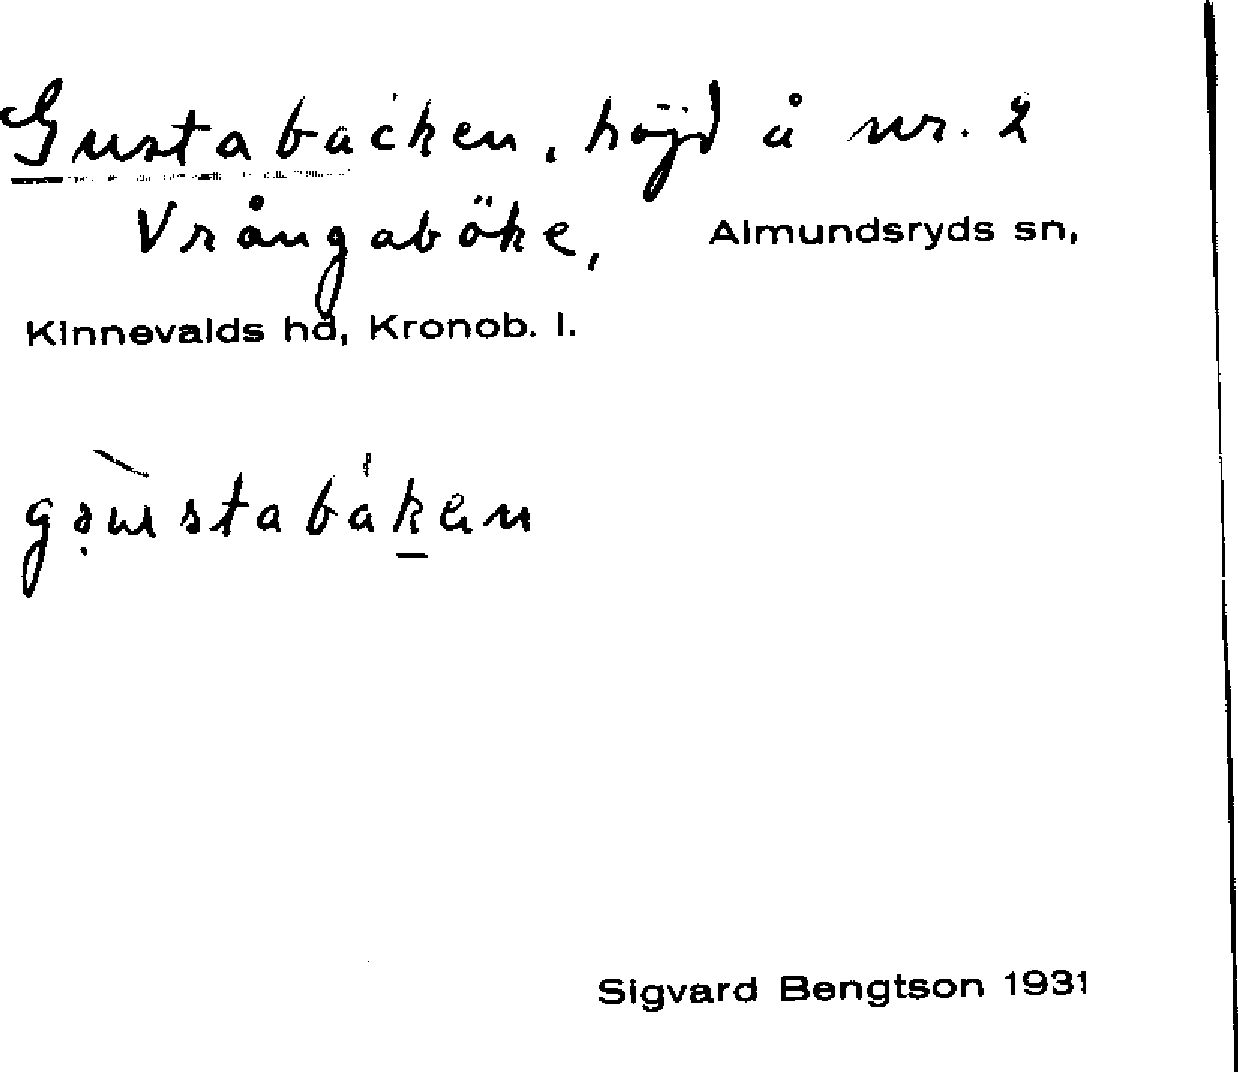 Gustabacken, höjd å nr. 2
Vrångaböke, Almundsryds sn,
Kinnevalds hd, Kronob. l.
Sigvard Bengtson 1931